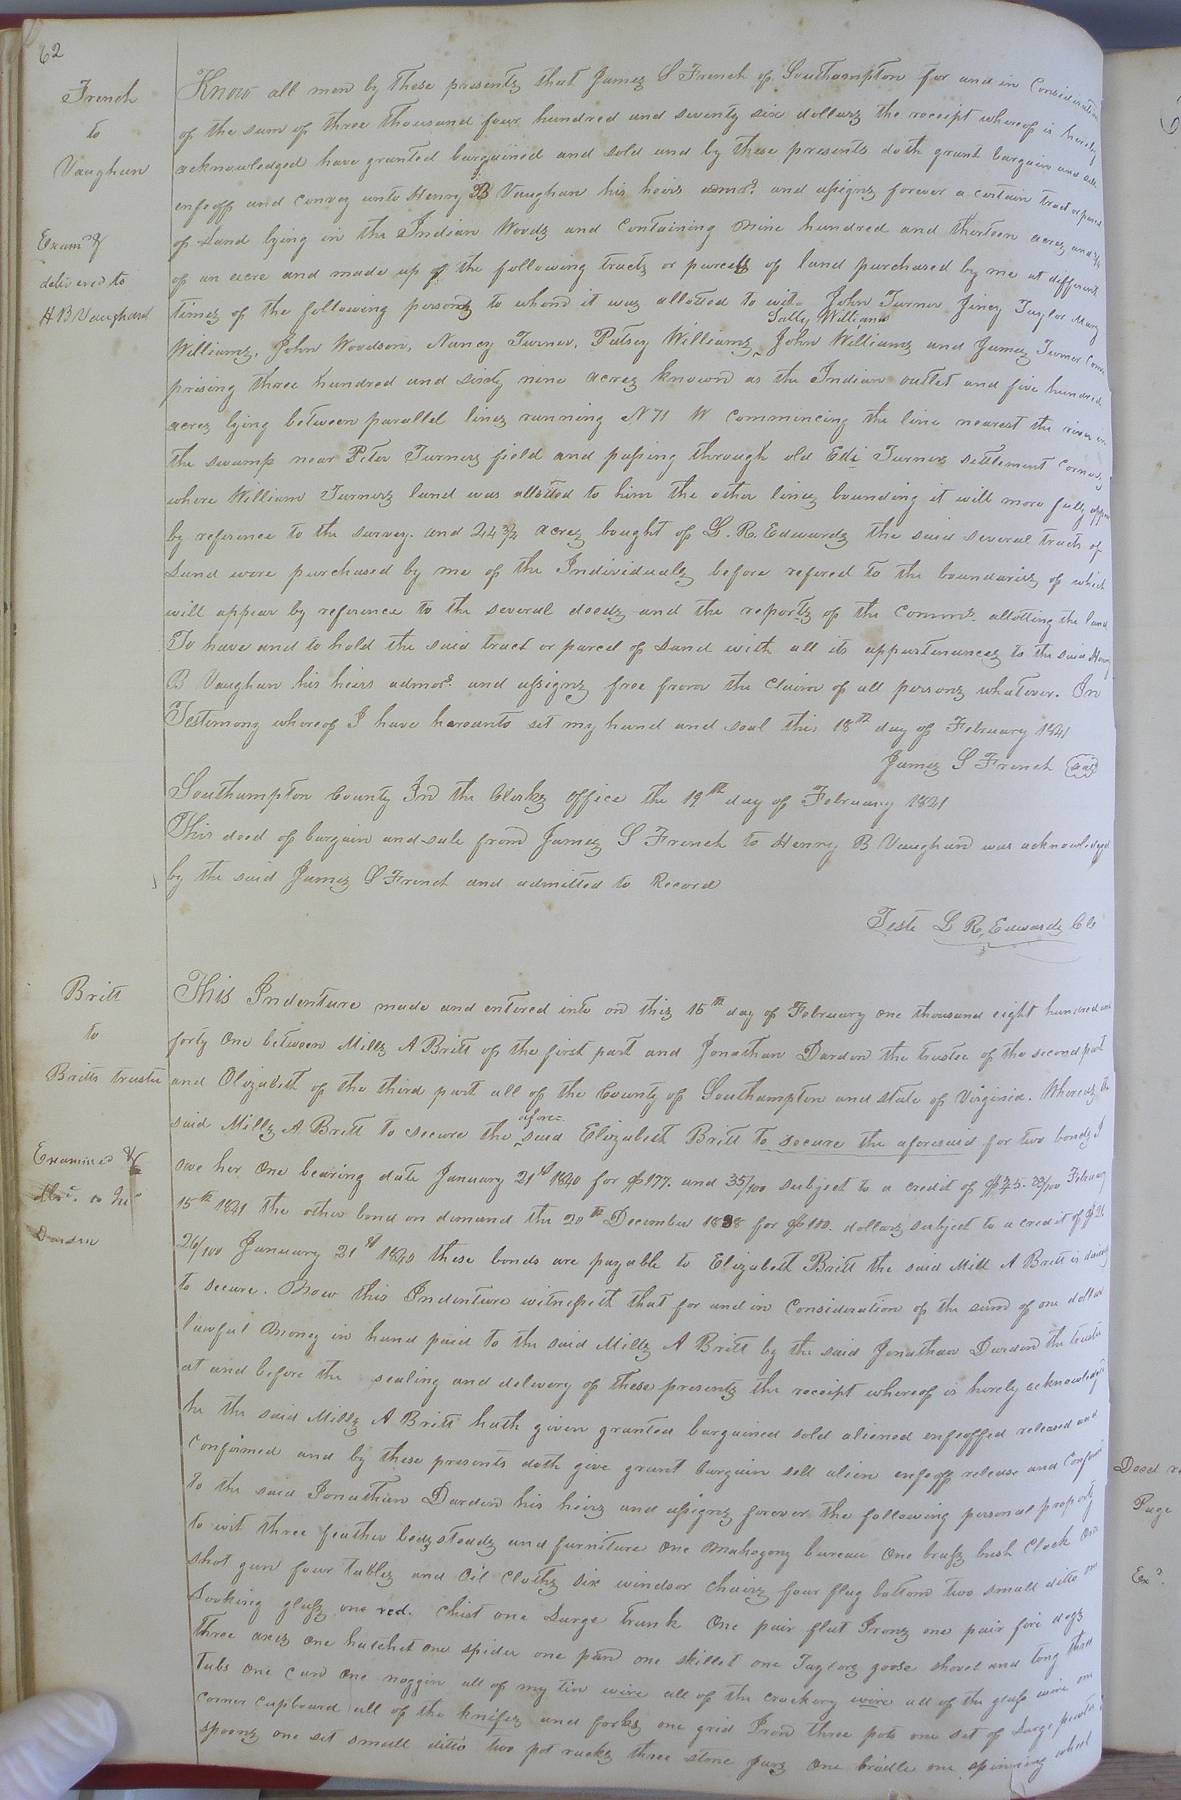 62
French
to
Vaughan
Exam.d &
delivered to
H B Vaughan
Know all men by these presents that James S French of Southampton for and in consideration
of the sum of three thousand four hundred and seventy six dollars the receipt whereof is hereby
acknowledged have granted bargained and sold and by these presents doth grant bargain and sell
enfeoff and convey unto Henry B Vaughan his heirs admrs. and assigns forever a certain tract or parcel
of Land lying in the Indian Woods and containing nine hundred and thirteen acres and 3/4
of an acre and made up of the following tracts or parcels of land purchased by me at different
times of the following persons to whom it was allotted to wit John Turner Jincy Taylor Mary
Williams, John Woodson, Nancy Turner, Patsey Williams, Sally Williams John Williams and James Turner Com
prising three hundred and sixty nine acres known as the Indian outlet and five hundred
acres lying between parallel lines running N 71 W commencing the line nearest the river in
the swamp near Peter Turners field and passing through old Edi Turners settlement corner
where William Turners land was allotted to him the other lines bounding it will more fully appear
by reference to the survey. and 44 3/4 acres bought of L. R. Edwards the said several tracts of
Land were purchased by me of the Individuals before refered to the boundaries of which
will appear by reference to the several deeds and the reports of the Comms. allotting the land
To have and to hold the said tract or parcel of Land with all its appurtenances to the said Henry
B Vaughan his heirs admors. and assigns free from the claim of all persons whatever. In
Testimony whereof I have hereunto set my hand and seal this 18th day of February 1841
James S French (seal)
Southampton County In the Clerks office the 19th day of February 1841
This deed of bargain and sale from James S French to Henry B Vaughan was acknowledged
by the said James S French and admitted to Record
Teste L R, Edwards Clk
Britt
to
Britts trustee
Examined &
Darden
This Indenture made and entered into on this 15th day of February one thousand eight hundred and
forty one between Mills A Britt of the first part and Jonathan Darden the trustee of the second part
and Elizabeth of the third part all of the County of Southampton and state of Virginia. Whereas the
said Mills A Britt to secure the afore= said Elizabeth Britt to secure the aforesaid for two bonds I
owe her one bearing date January 21st 1840 for $177. and 35/100 subject to a credit of $75. 33/100 February
15th 1841 the other bond on demand the 20th December 1838 for $100. dollars subject to a credit of $21.
26/100 January 21st 1840 these bonds are payable to Elizabeth Britt the said Mill A Britt is desirous
to secure. Now this Indenture witnesseth that for and in consideration of the sum of one dollar
lawful money in hand paid to the said Mills A Britt by the said Jonathan Darden the trustee
at and before the sealing and delivery of these presents the receipt whereof is hereby acknowledged
he the said Mills A Britt hath given granted bargained sold aliened enfeoffed released and
confirmed and by these presents doth give grant bargain sell alien enfeoff release and confirm
to the said Jonathan Darden his heirs and assigns forever the following personal property
to wit three feather beds, steads and furniture one mahogony bureau one brass bush Clock one
shot gun four tables and Oil cloths six windsor chairs four flag bottom two small ditto one
Looking glass one red. chist one Large Trunk one pair flat Irons one pair fire dogs
three axes one hatchet one spider one pan one skillet one Taylors goose shovel and tong three
tubs one can one noggin all of my tin wire all of the crockery wire all of the glass wire one
corner cupboard all of the knifes and forks, one grid Iron three pots one set of Large pewter
spoons one set small ditto two pot racks three stone jars one bridle one spinning wheel
Deed
Page
Ex.d